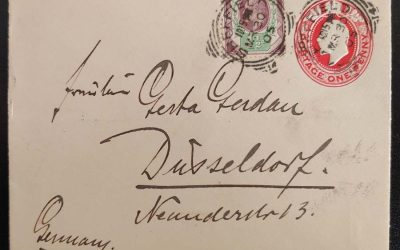 Fräulein Gerta Gerdau
Düsseldorf.
Neanderstr 13.
Germany.
POSTAGE ONE PENNY